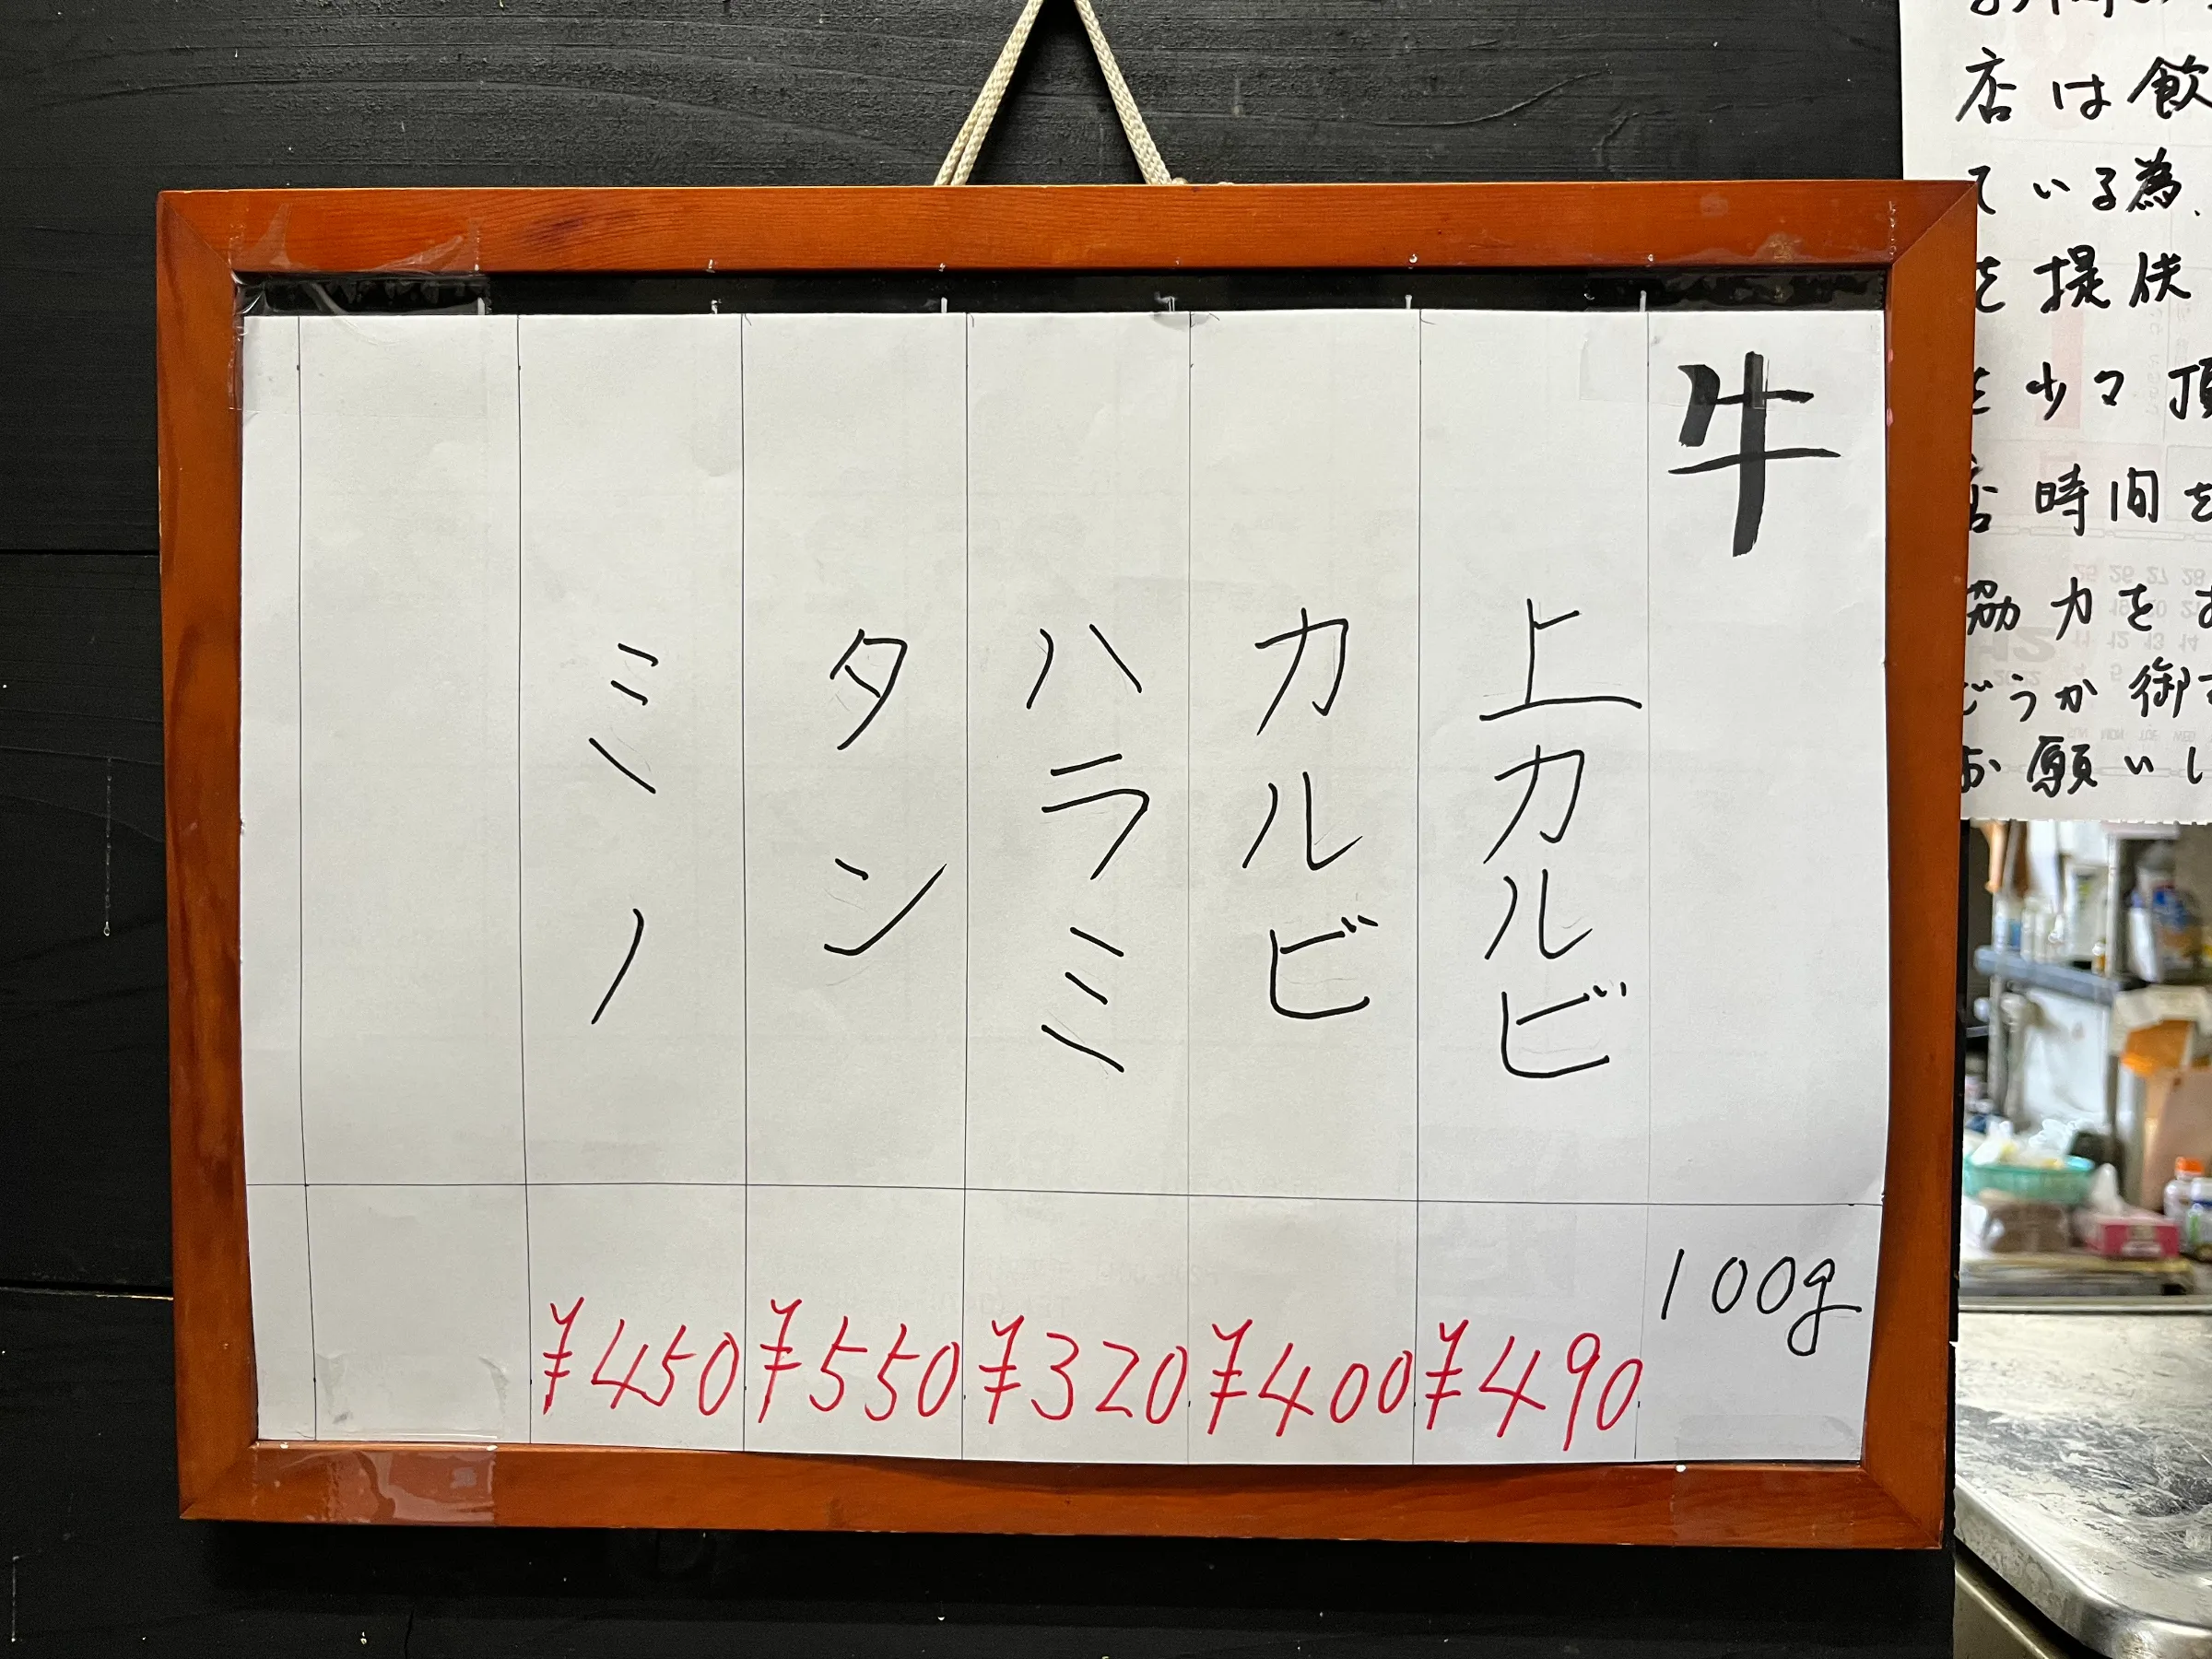 牛
100g
上カルビ
¥490
カルビ
¥400
ハラミ
¥320
タン
¥550
ミノ
¥450
店は飲
ている為、
を提供
を少々頂
店時間を
協力をお
どうか御
お願いし